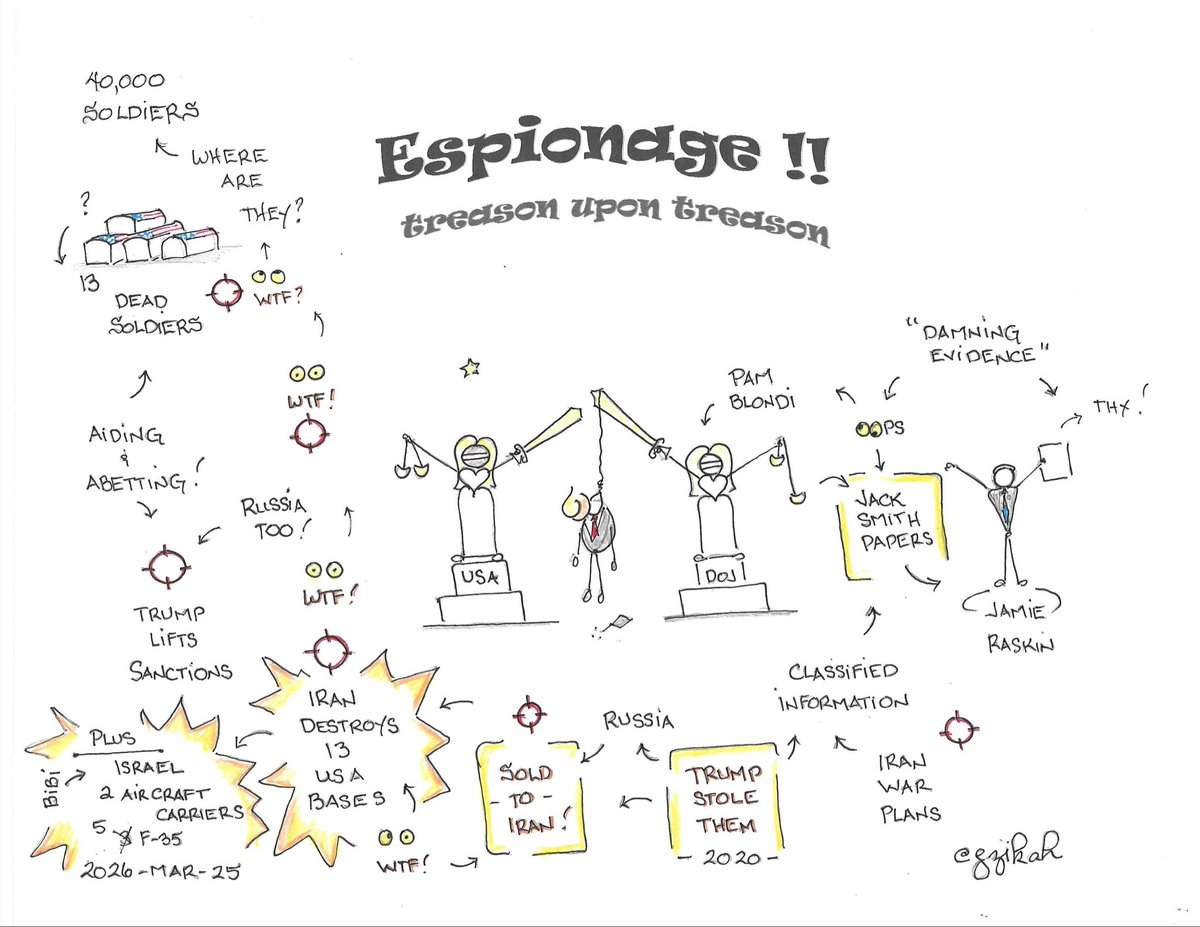 Espionage !!
treason upon treason
40,000
SOLDIERS
WHERE
ARE
THEY?
?
13
DEAD
SOLDIERS
WTF?
WTF!
AIDING
&
ABETTING!
RUSSIA
TOO!
WTF!
TRUMP
LIFTS
SANCTIONS
PLUS
BIBI
ISRAEL
2 AIRCRAFT
CARRIERS
5 F-35
2026-MAR-25
IRAN
DESTROYS
13
USA
BASES
WTF!
SOLD
- TO -
IRAN!
RUSSIA
TRUMP
STOLE
THEM
- 2020 -
CLASSIFIED
INFORMATION
IRAN
WAR
PLANS
USA
DOJ
PAM
BLONDI
"DAMNING
EVIDENCE"
OOPS
THX!
JACK
SMITH
PAPERS
JAMIE
RASKIN
@gzikah